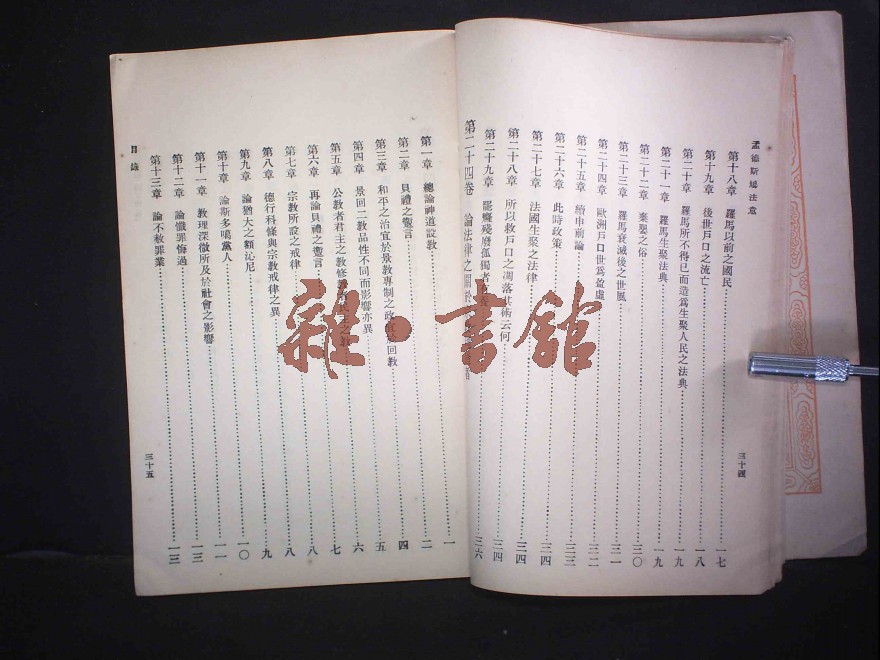 孟德斯鳩法意
第十八章　羅馬以前之國民……一七
第十九章　後世戶口之流亡……一八
第二十章　羅馬所不得已而造爲生聚人民之法典……一九
第二十一章　羅馬生聚法典……一九
第二十二章　棄嬰之俗……三〇
第二十三章　羅馬衰滅後之世風……三一
第二十四章　歐洲戶口世爲盈虛……三二
第二十五章　續申前論……三三
第二十六章　此時政策……三四
第二十七章　法國生聚之法律……三四
第二十八章　所以救戶口之凋落其術云何……三四
第二十九章　罷癃殘廢孤獨者……三六
三十四
第二十四卷　論法律之關於
第一章　總論神道設教……一
第二章　貝禮之讆言……二
第三章　和平之治宜於景教專制之政宜於回教……四
第四章　景回二教品性不同而影響亦異……五
第五章　公教者君主之教修……六
第六章　再論貝禮之讆言……七
第七章　宗教所設之戒律……八
第八章　德行科條與宗教戒律之異……八
第九章　論猶大之額沁尼……九
第十章　論斯多噶黨人……一〇
第十一章　教理深微所及於社會之影響……一一
第十二章　論懺罪悔過……一三
第十三章　論不赦罪業……一三
目錄
三十五
雜·書館